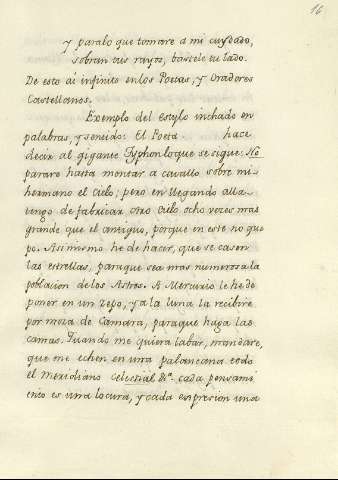 16
y paralo que tomare a mi cuydado,
sobran tus rayos, bastele tu lado.
De esto ai infinito enlos Poetas, y Oradores
Castellanos.
Exemplo del estylo inchado en
palabras, y sentido: El Poeta hace
decir al gigante Typhon loque se sigue: No
pararè hasta montar a cavallo sobre mi
hermano el Cielo; pero en llegando alla
tengo de fabricar otro Cielo ocho voces mas
grande que el antiguo, porque en este no que
po. Asimismo he de hacer, que se casen
las estrellas, paraque sea mas numerosa la
poblacion delos Astros. A Mercurio le he de
poner en un zepo, y a la luna la recibire
por moza de Camara, paraque haga las
camas. Quando me quiera labar, mandare,
que me echen en una palancana todo
el Meridiano Celestial &a. cada pensami
ento es una locura, y cada expresion una